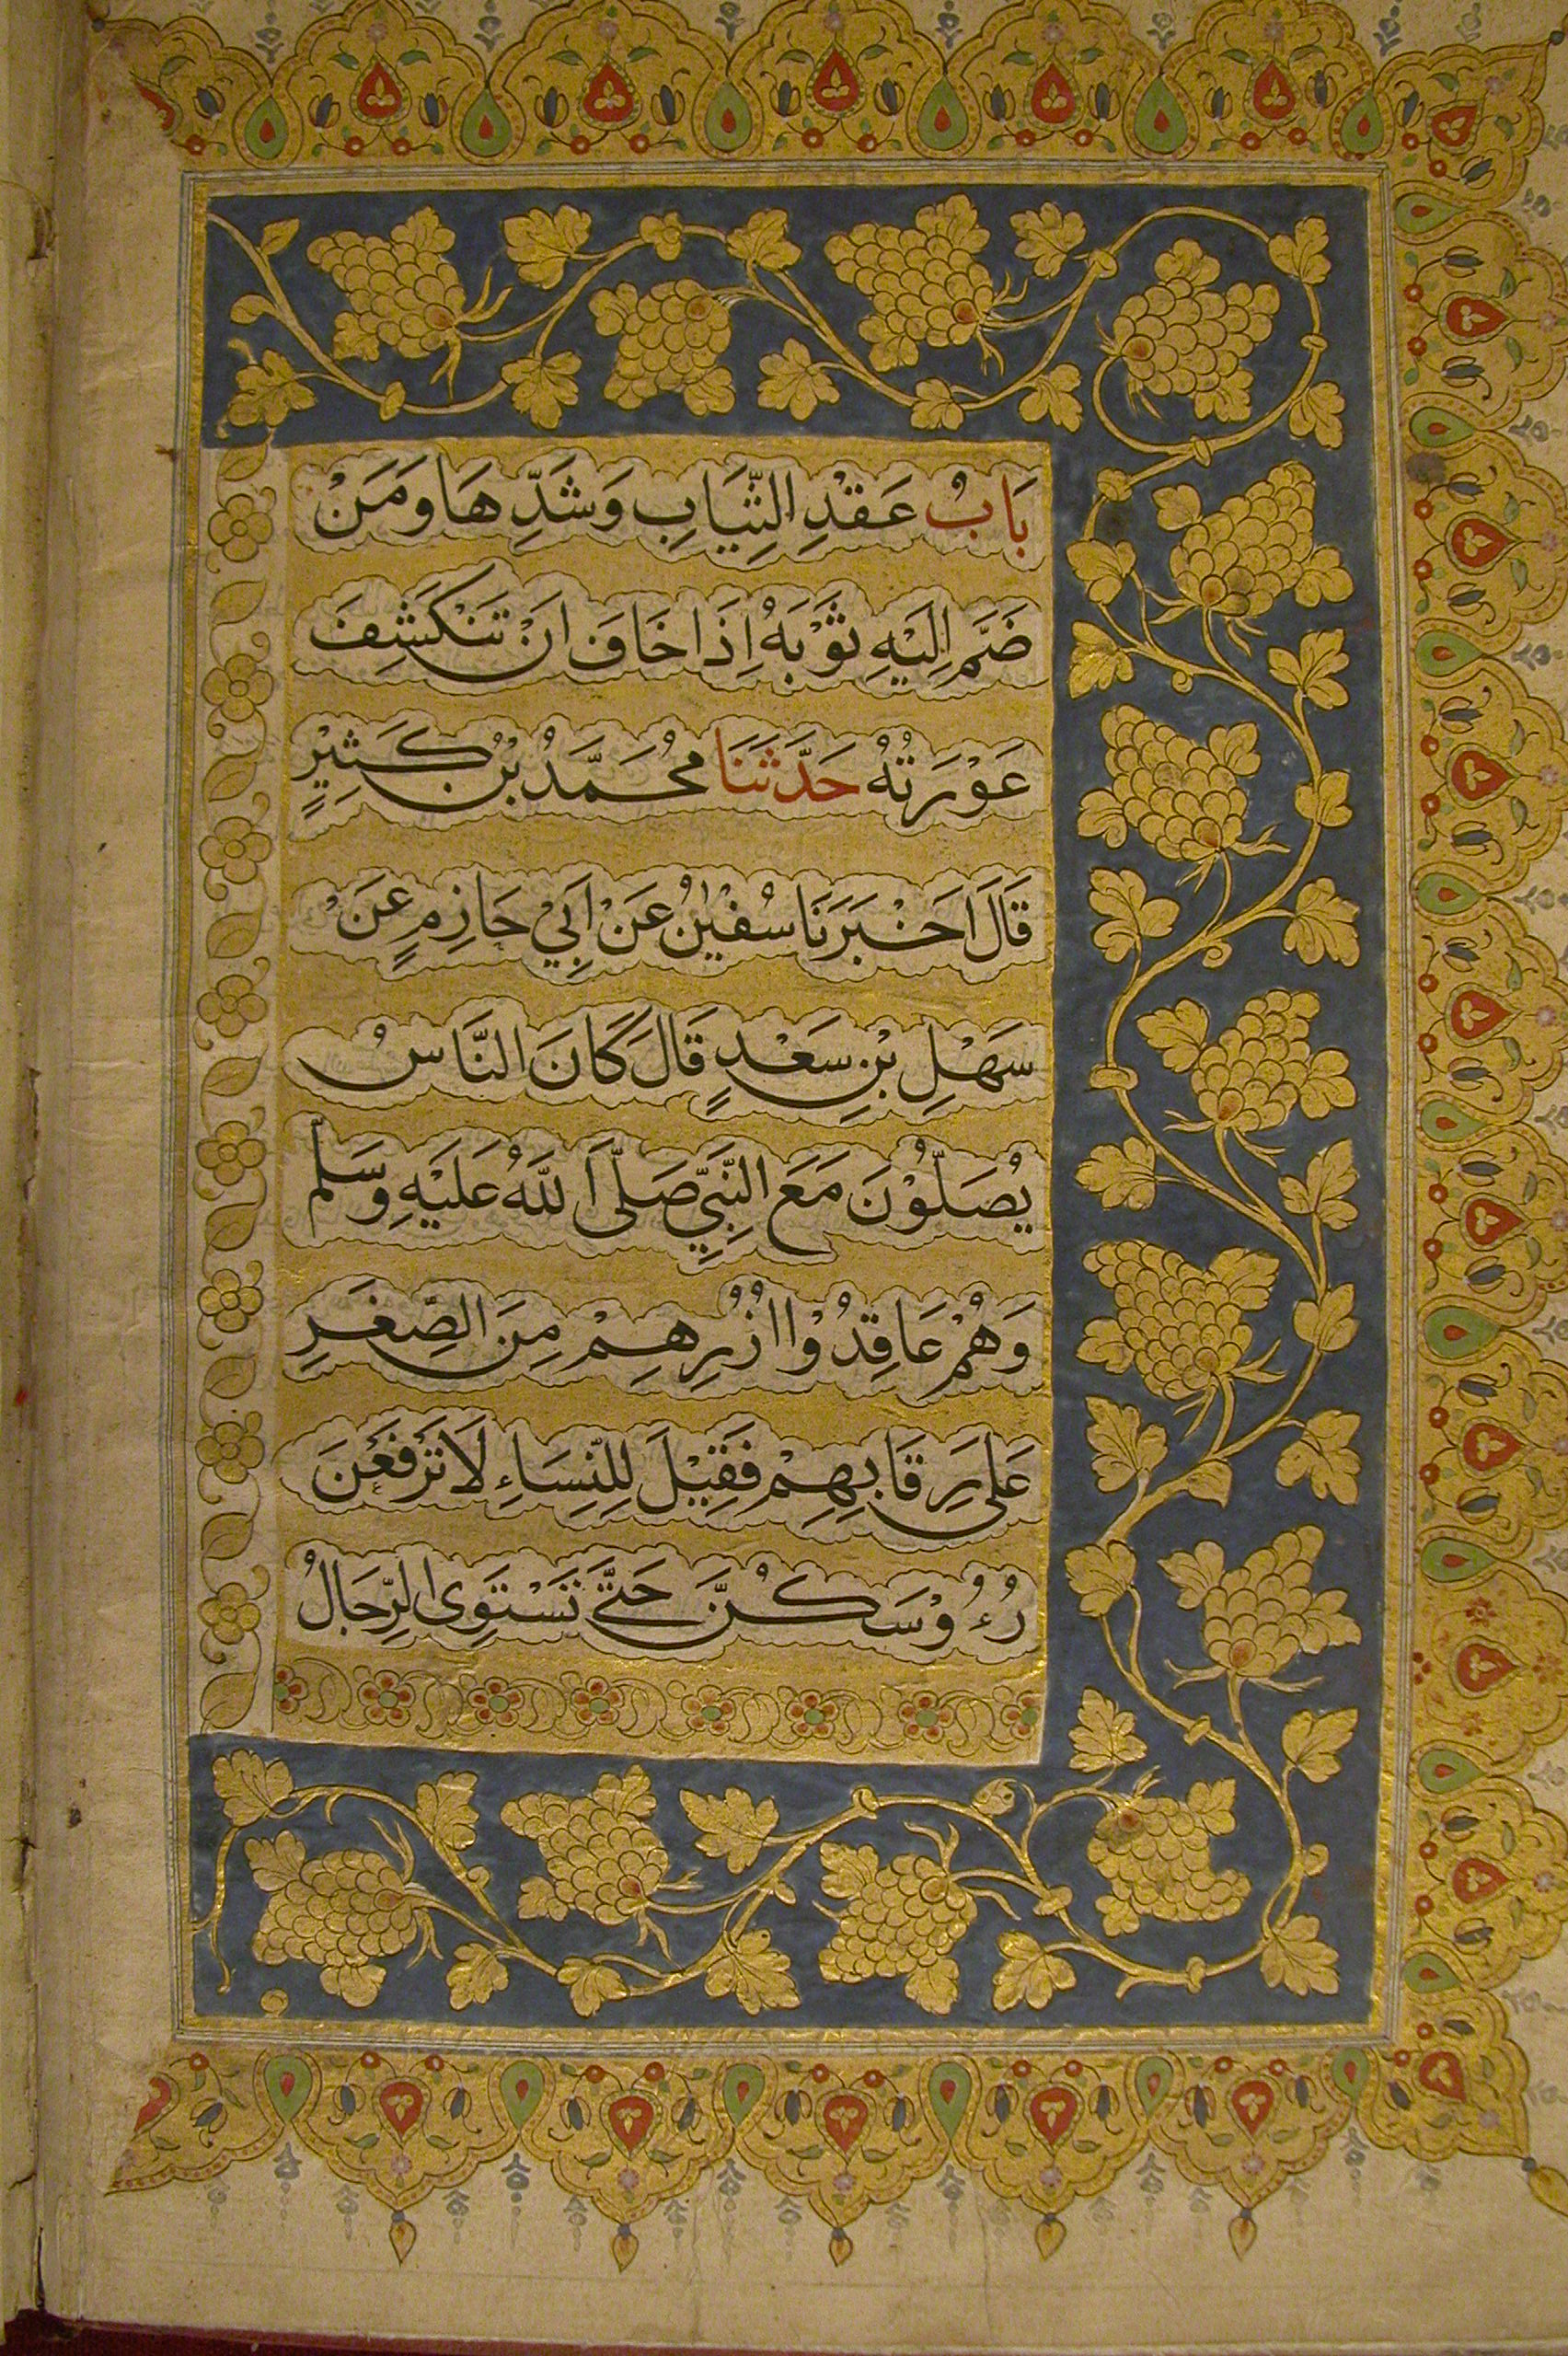 بَابُ عَقْدِ الثِّيَابِ وَشَدِّهَا وَمَنْ
ضَمَّ اِلَيْهِ ثَوْبَهُ اِذَا خَافَ انْ تَنْكَشِفَ
عَوْرَتُهُ حَدَّثَنَا مُحَمَّدُ بْنُ كَثِيْرٍ
قَالَ اَخْبَرَنَا سُفْيٰنُ عَنْ اَبِيْ حَازِمٍ عَنْ
سَهْلِ بْنِ سَعْدٍ قَالَ كَانَ النَّاسُ
يُصَلُّوْنَ مَعَ النَّبِيِّ صَلَّى اللهُ عَلَيْهِ وَسَلَّمْ
وَهُمْ عَاقِدُوْا اُزُرِهِمْ مِنَ الصِّغَرِ
عَلَى رِقَابِهِمْ فَقِيْلَ لِلنِّسَاءِ لَا تَرْفَعْنَ
رُءُوْسَكُنَّ حَتَّى تَسْتَوِى الرِّجَالُ